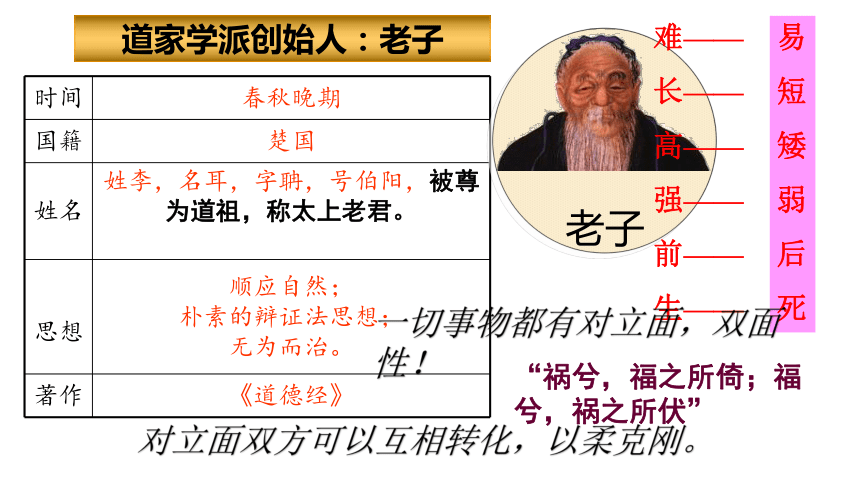 道家学派创始人：老子
时间 春秋晚期
国籍 楚国
姓名 姓李，名耳，字聃，号伯阳，被尊
为道祖，称太上老君。
思想 顺应自然；
朴素的辩证法思想；
无为而治。
著作 《道德经》
老子
难—— 易
长—— 短
高—— 矮
强—— 弱
前—— 后
生—— 死
一切事物都有对立面，双面
性！
“祸兮，福之所倚；福
兮，祸之所伏”
对立面双方可以互相转化，以柔克刚。